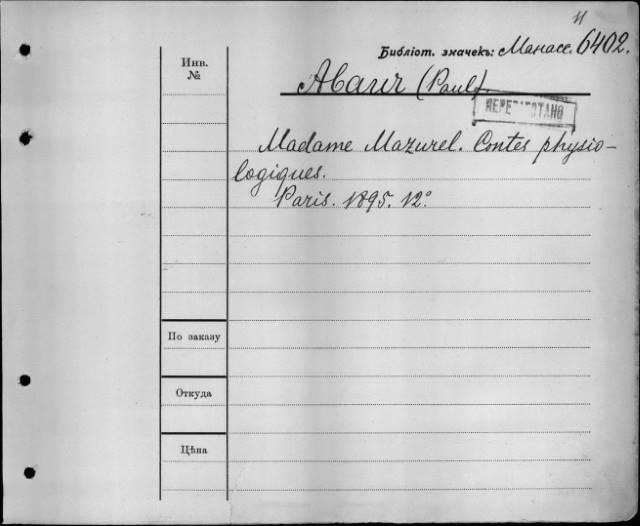 11
Библіот. значекъ: Манасе. 6402.
Инв.
№
Abaur (Paul).
ПЕРЕ
ТАНО
Madame Mazurel. Contes physio-
logiques.
Paris. 1895. 12°
По заказу
Откуда
Цѣна